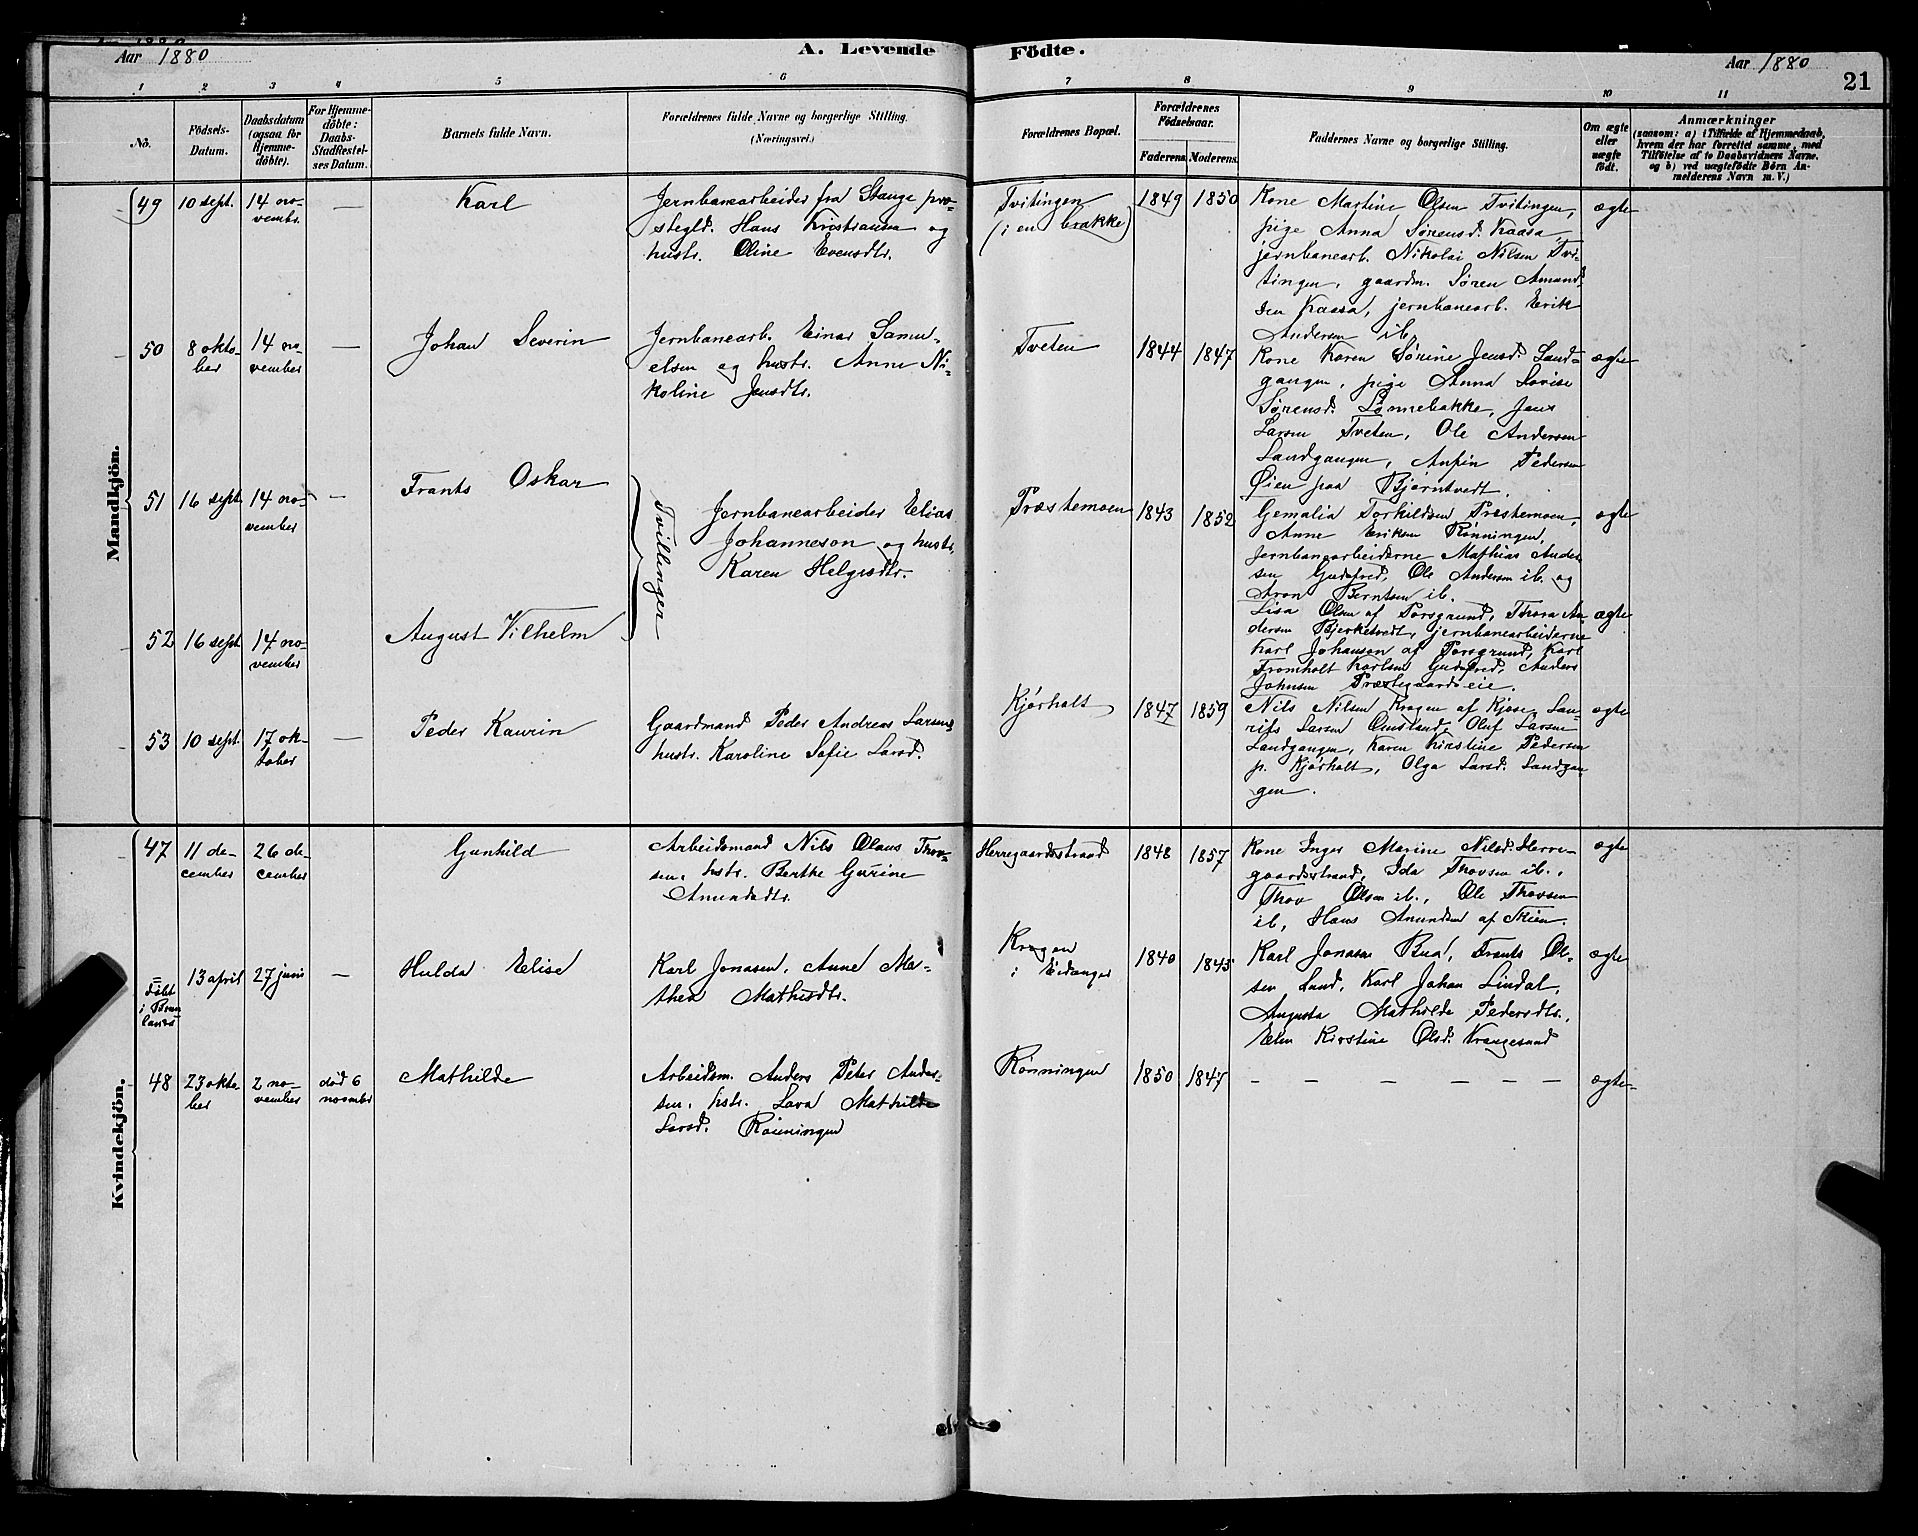 Aar 1880
A. Levende
Födte.
Aar 1880
21
1 2 3 4 5 6 7 8 9 10 11
No.
Födsels-
Datum.
Daabsdatum
(ogsaa for
Hjemme-
döbte).
For Hjemme-
döbte:
Daabs-
Stadfæstel-
ses Datum.
Barnets fulde Navn.
Forældrenes fulde Navne og borgerlige Stilling.
(Næringsvei.)
Forældrenes Bopæl.
Forældrenes
Födselsaar.
Faderens. Moderens.
Faddernes Navne og borgerlige Stilling.
Om ægte
eller
uægte
födt.
Anmærkninger
(saasom: a) i Tilfælde af Hjemmedaab,
hvem der har forrettet samme, med
Tilföielse af to Daabsvidners Navne.
og b) ved uægtefödte Börn An-
melderens Navn m. V.)
Mandkjön.
49
10 sept.
14 no-
vembr.
—
Karl
Jernbanearbeider fra Stange præ-
stegld. Hans Kristiansen og
hustr. Oline Evensdtr.
Tvitingen
(i en brakke)
1849 1850
Kone Martine Olsen Tvitingen,
pige Anna Sørensd. Kaasa
jernbanearb. Nikolai Nilsen Tvi-
tingen, gaardm. Søren Amund
sen Kaasa, jernbanearb. Erik
Andersen ib.
ægte
50
8 okto-
ber
14 no-
vember
—
Johan Severin
Jernbanearb. Einar Samu-
elsen og hustr. Anne Ni-
koline Jensdtr.
Tveten
1844 1847
Kone Karen Sørine Jensd. Land-
gangen, pige Anna Lovise
Sørensd. Lønnebakke, Jens
Larsen Tveten, Ole Andersen
Landgangen, Anfin Pedersen
Øien paa Bjørntvedt.
ægte
51
16 sept.
14 no-
vember
—
Frants Oskar
Tvillinger
Jernbanearbeider Elias
Johanneson og hustr.
Karen Helgesdtr.
Præstemoen
1843 1852
Gemalia Torkildsen Præstemoen,
Anne Eriksen Rønningen,
Jernbanearbeiderne Mathias Ander
sen Gudsfred, Ole Andersen ib. og
Aron Berntsen ib.
ægte
52
16 sept.
14 no-
vember
August Vilhelm
Lisa Olsen af Porsgrund, Thora An
dersen Bjerketvedt, jernbanearbeiderne
Karl Johansen af Porsgrund, Karl
Fromholt Karlsen Gudsfred, Anders
Johnsen Præstegaardseie.
ægte
53
10 sept.
17 ok-
tober
—
Peder Kaurin
Gaardmand Peder Andreas Larsen,
hustr. Karoline Sofie Larsd.
Kjørholt
1847 1859
Nils Nilsen Krogen af Kjøse, Lau-
rits Larsen Ønsland, Oluf Larsen
Landgangen, Karen Kirstine Pedersen
p. Kjørholt, Olga Larsd. Landgan
gen.
ægte
Kvindekjön.
47
11 de-
cember
26 de-
cember
Gunhild
Arbeidsmand Nils Olaus Thov-
sen, hstr. Berthe Gurine
Amundsdtr.
Herregaardsstrand
1848 1857
Kone Inger Marine Nilsd. Herre-
gaardsstrand, Ida Thovsen ib.,
Thov Olsen ib., Ole Thovsen
ib, Hans Amundsen af Skien.
ægte
=
Født
i Brun
lanes
13 april
27 juni
—
Hulda Elise
Karl Jonasen, Anne Ma-
thea Mathisdtr.
Krogen
i Eidanger
1840 1845
Karl Jonasen Bua, Frants Ol-
sen Lund, Karl Johan Lindal,
Augusta Mathilde Pedersdtr.,
Elen Kirstine Olsd. Vrangesund
ægte
48
23 okto-
ber
2 no-
vember
død 6
november
Mathilde
Arbeidsm. Anders Peter Ander-
sen, hstr. Lava Mathilde
Larsd. Rønningen
Rønningen
1850 1847
— — — — — —
ægte